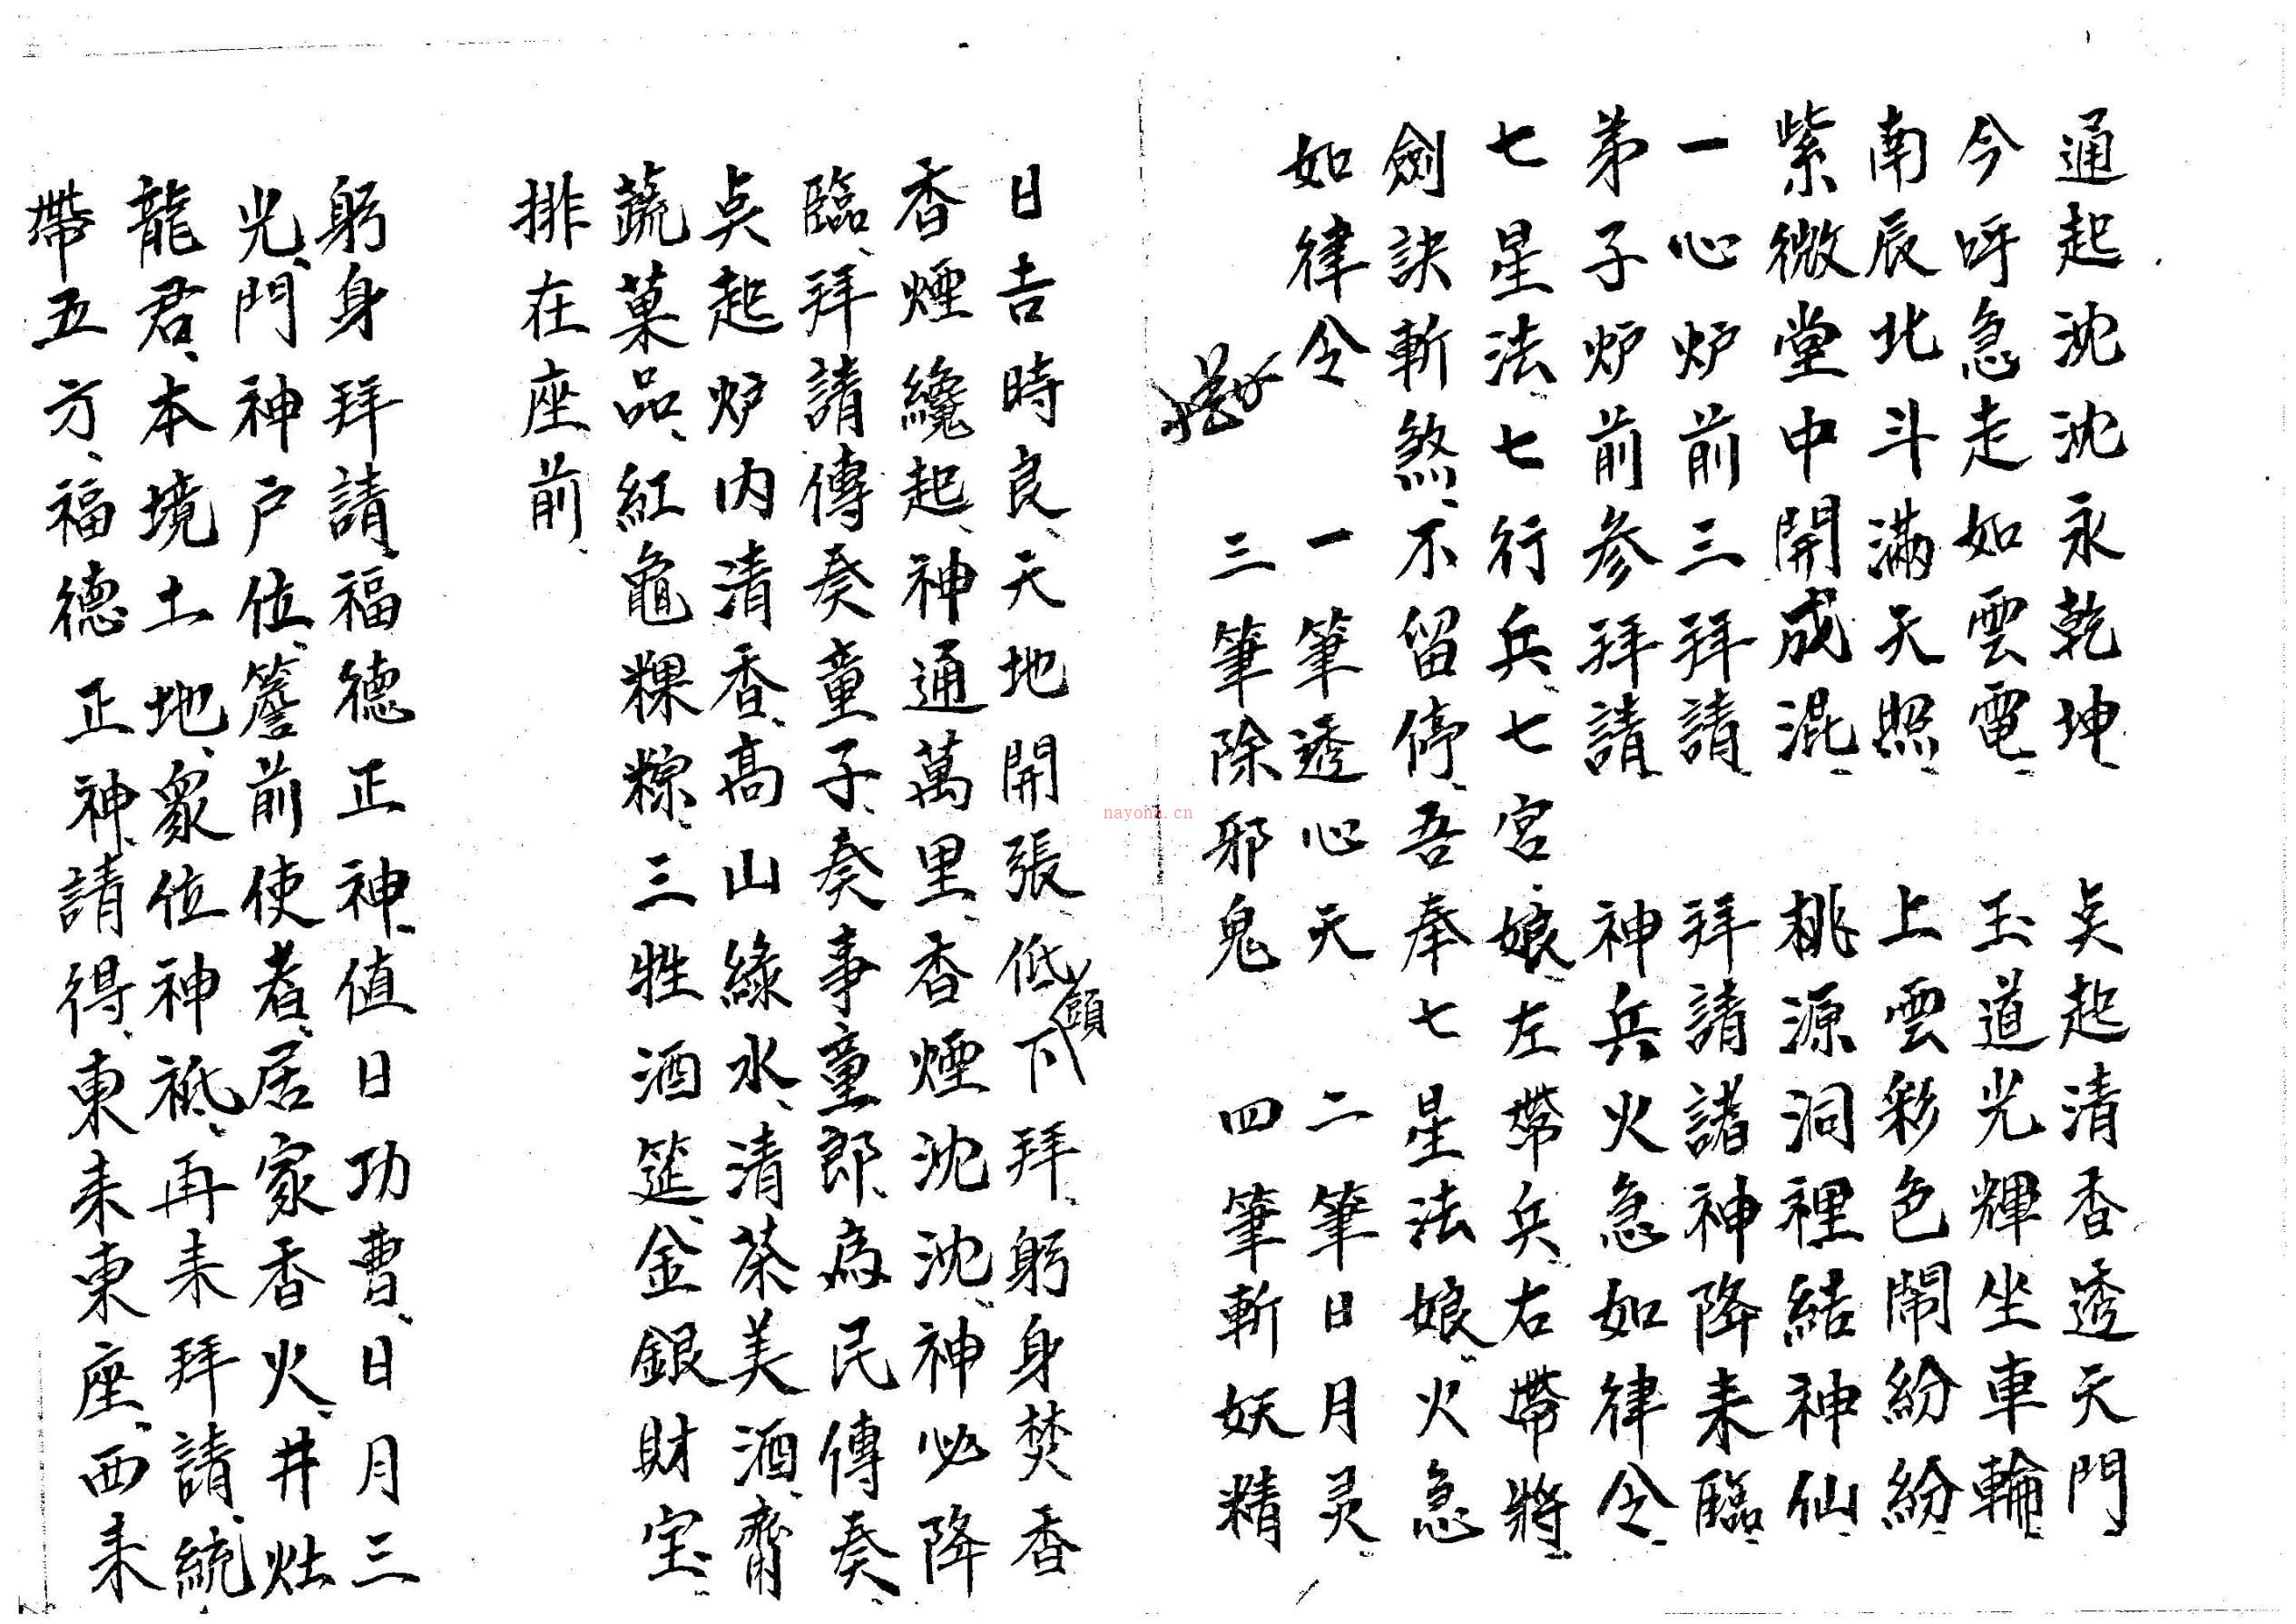 通起沈沈永乾坤、 点起清香透天門
今呼急走如雲電、 玉道光輝坐車輪、
南辰北斗滿天照、 上雲彩色鬧紛紛、
紫微堂中開成混、 桃源洞裡結神仙、
一心炉前三拜請、 拜請諸神降耒臨、
弟子炉前參拜請 神兵火急如律令、
七星法、七七行兵、七宮娘、左帶兵、右帶將、
劍訣斬煞、不留停、吾奉七星法娘、火急
如律令 一筆透心天 二筆日月灵、
三筆除邪鬼 四筆斬妖精
日吉時良、天地開張、低頭下拜、躬身焚香
香煙纔起、神通萬里、香煙沈沈、神必降
臨、拜請傳奏童子、奏事童郎、為民傳奏、
点起炉内清香、高山綠水、清茶美酒、齊
蔬菓品、紅龜粿粽、三牲酒筵、金銀財宝、
排在座前、
躬身拜請、福德正神、值日功曹、日月三
光、門神户位、簷前使者、居家香火、井灶
龍君、本境土地、眾位神祗、再耒拜請、統
帶五方、福德正神、請得、東耒東座、西耒
nayona.cn